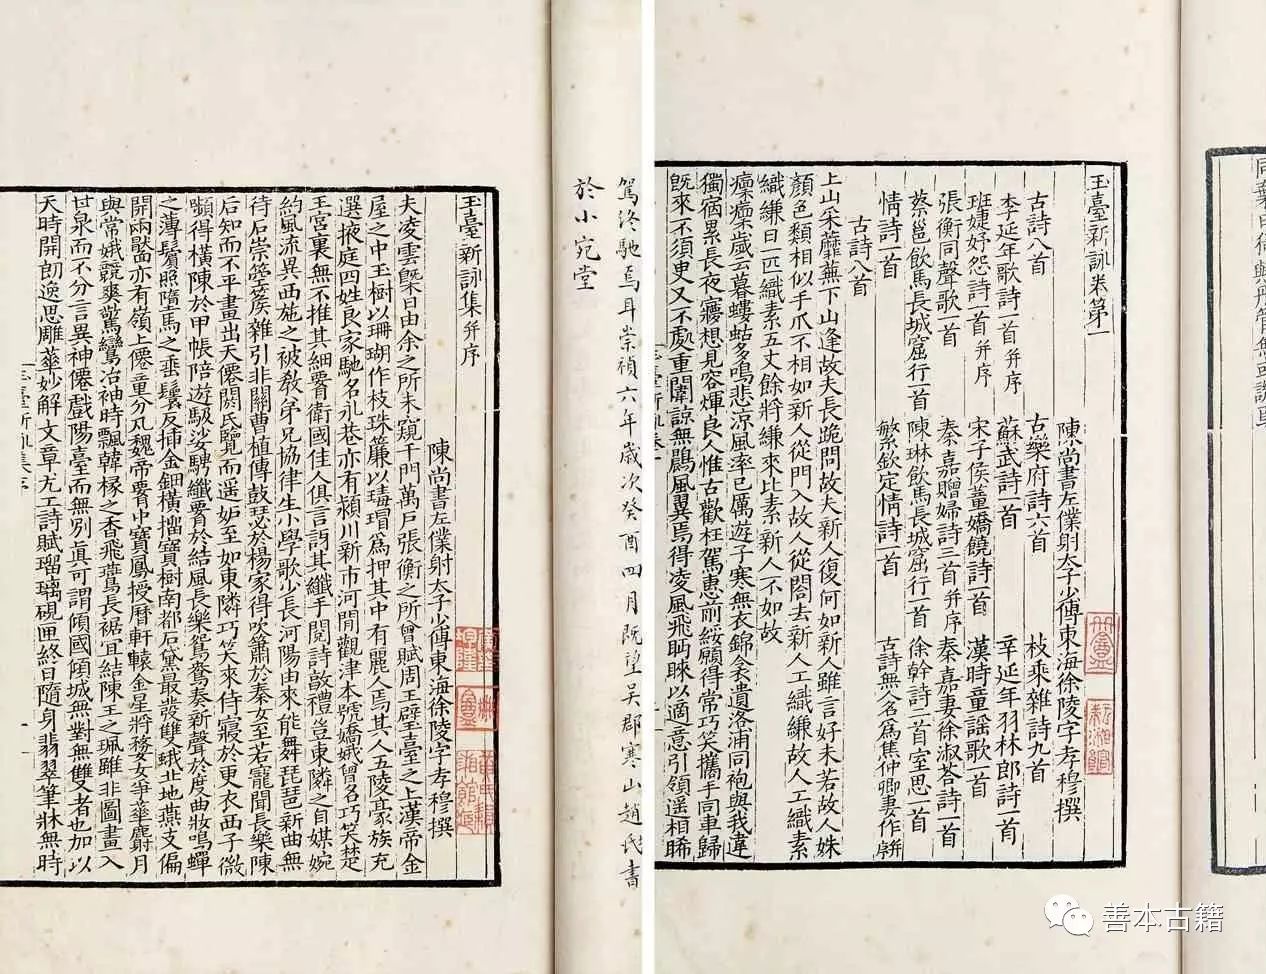 駕終馳焉耳崇禎六年歲次癸酉四月既望吳郡寒山趙氏書
於小宛堂
玉臺新詠集并序
陳尚書左僕射太子少傅東海徐陵字孝穆撰
夫凌雲槩日由余之所未窺千門萬戶張衡之所曾賦周王璧臺之上漢帝金
屋之中玉樹以珊瑚作枝珠簾以瑇瑁為押其中有麗人焉其人五陵豪族充
選掖庭四姓良家馳名永巷亦有潁川新市河間觀津本號嬌娥曾名巧笑楚
王宮裏無不推其細腰衛國佳人俱言訝其纖手閱詩敦禮豈東隣之自媒婉
約風流異西施之被教弟兄協律生小學歌少長河陽由來能舞琵琶新曲無
待石崇箜篌雜引非關曹植傳鼓瑟於楊家得吹簫於秦女至若寵聞長樂陳
后知而不平畫出天僊閼氏覽而遥妒至如東隣巧笑來侍寢於更衣西子微
顰得橫陳於甲帳陪遊馺娑騁纖腰於結風長樂鴛鴦奏新聲於度曲妝鳴蟬
之薄鬢照墮馬之垂鬟反插金鈿橫抽寶樹南都石黛最發雙蛾北地燕支偏
開兩靨亦有嶺上僊童分丸魏帝腰中寶鳳授曆軒轅金星將婺女爭華麝月
與常娥競爽驚鸞冶袖時飄韓掾之香飛鷰長裾宜結陳王之珮雖非圖畫入
甘泉而不分言異神僊戲陽臺而無別真可謂傾國傾城無對無雙者也加以
天時開朗逸思雕華妙解文章尤工詩賦瑠璃硯匣終日隨身翡翠筆牀無時
玉臺新詠卷第一
陳尚書左僕射太子少傅東海徐陵字孝穆撰
古詩八首 古樂府詩六首 枚乘雜詩九首
李延年歌詩一首并序 蘇武詩一首 辛延年羽林郎詩一首
班婕妤怨詩一首并序 宋子侯董嬌饒詩一首 漢時童謡歌一首
張衡同聲歌一首 秦嘉贈婦詩三首并序 秦嘉妻徐淑荅詩一首
蔡邕飲馬長城窟行一首 陳琳飲馬長城窟行一首 徐幹詩二首室思一首
情詩一首 繁欽定情詩一首 古詩無名為焦仲卿妻作并
古詩八首
上山采蘼蕪下山逢故夫長跪問故夫新人復何如新人雖言好未若故人姝
顏色類相似手爪不相如新人從門入故人從閤去新人工織縑故人工織素
織縑日一匹織素五丈餘將縑來比素新人不如故
凜凜歲云暮螻蛄多鳴悲涼風率已厲遊子寒無衣錦衾遺洛浦同袍與我違
獨宿累長夜夢想見容輝良人惟古歡枉駕惠前綏願得常巧笑攜手同車歸
既來不須臾又不處重闈諒無鷐風翼焉得凌風飛眄睞以適意引領遥相睎
善本古籍